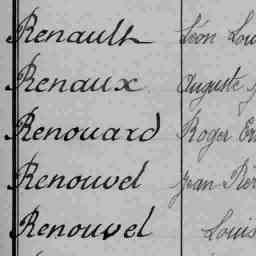 Renault Léon
Renaux Auguste
Renouard Roger
Renouvel Jean
Renouvel Louis